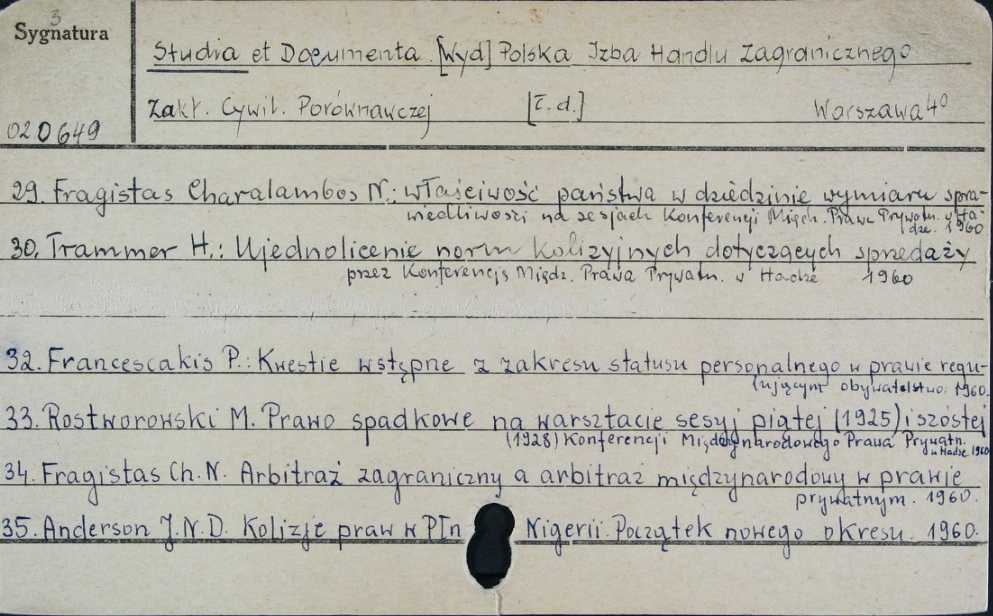 3
Sygnatura
Studia et Documenta. [Wyd] Polska Izba Handlu Zagranicznego
Zakł. Cywil. Porównawczej [T.d.] Warszawa 40
020649
29. Fragistas Charalambos N.: Właściwość państwa w dziedzinie wymiaru spra-
wiedliwości na sesjach Konferencji Międz. Prawa Prywatn. w Ha-
dze. 1960
30. Trammer H.: Ujednolicenie norm kolizyjnych dotyczących sprzedaży
przez Konferencję Międz. Prawa Prywatn. w Hadze 1960
32. Francescakis P.: Kwestie wstępne z zakresu statusu personalnego w prawie regu-
lującym obywatelstwo. 1960.
33. Rostworowski M. Prawo spadkowe na warsztacie sesyj piątej (1925) i szóstej
(1928) Konferencji Międzynarodowego Prawa Prywatn.
w Hadze 1960
34. Fragistas Ch. N. Arbitraż zagraniczny a arbitraż międzynarodowy w prawie
prywatnym. 1960.
35. Anderson J.N.D. Kolizje praw w Płn Nigerii. Początek nowego okresu. 1960.